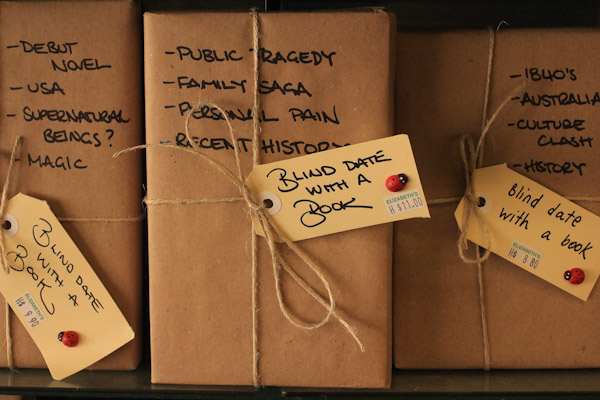 - DEBUT
NOVEL
- USA
- SUPERNATURAL
BEINGS?
- MAGIC
BLIND DATE
WITH A
BOOK
ELIZABETH'S
H$ 9.90
- PUBLIC TRAGEDY
- FAMILY SAGA
- PERSONAL PAIN
- RECENT HISTORY
BLIND DATE
WITH A
BOOK
ELIZABETH'S
H $11.00
- 1840'S
- AUSTRALIA
- CULTURE
CLASH
- HISTORY
Blind date
with a book
ELIZABETH'S
H$ 8.80